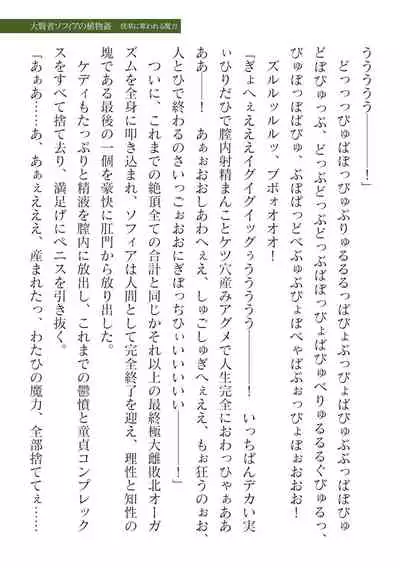 大賢者ソフィアの植物姦　伎草に奪われる魔力
　どっっっぴゅばぼっっぴゅぶりゅるるるっっぱぴょぶっっぴょばぴゅぴゅぶぶっっぼぼぴゅ
どぼぴゅっっぷ、どっぶどっぶどっぶばぼっっぴょばぴゅべりゅるるるぐぴゅるっ、
うううう────！」
　ズルルッルルッ、ブボォオオオ！
びゅぼっぼばびゅ、ぶぼばっっどべぶゅぶびょぼべゃばぶぉっっびょぼぉおおお！
『ぎょへぇええイグイグイッグぅうううう────！　いっちばんデカい実
ぃひりだひで膣内射精まんことケツ穴産みアグメで人生完全におわっひゃぁああ
ああ──！　あぁぉおおしあわへぇえ、しゅごしゅぎへぇええ、もぉ狂うのぉお、
人とひで終わるのさいっごぉおおにぎぼっちひぃいいいいい──！」
　ついに、これまでの絶頂全ての合計と同じかそれ以上の最終極大雌敗北オーガ
ズムを全身に叩き込まれ、ソフィアは人間として完全終了を迎え、理性と知性の
塊である最後の一個を豪快に肛門から放り出した。
　ケディもたっぷりと精液を膣内に放出し、これまでの鬱憤と童貞コンプレック
スをすべて捨て去り、満足げにペニスを引き抜く。
「あぁあ……あ、あぁぇえええ、産まれたっ、わたひの魔力、全部捨ててぇ……